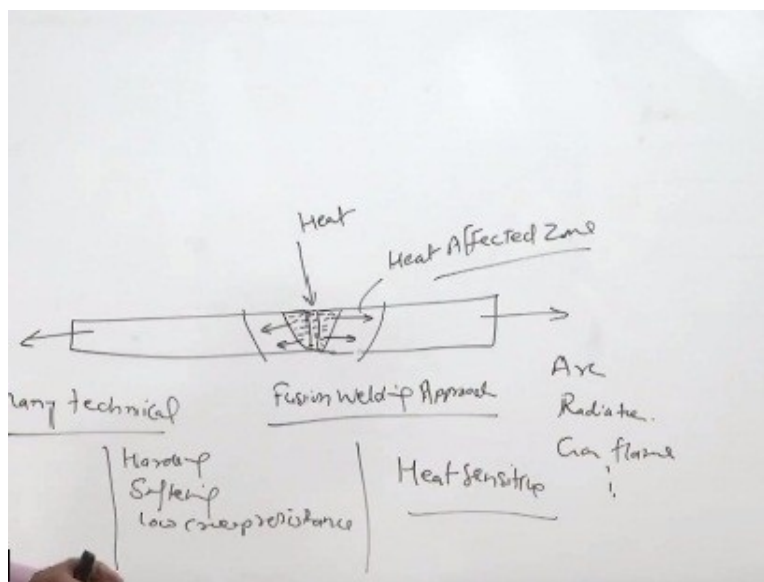 Heat
Heat Affected Zone
many technical
Fusion Welding Approach
Arc
Radiation.
Gas flame
Hardening
Softening
low creep resistance
Heat Sensitive